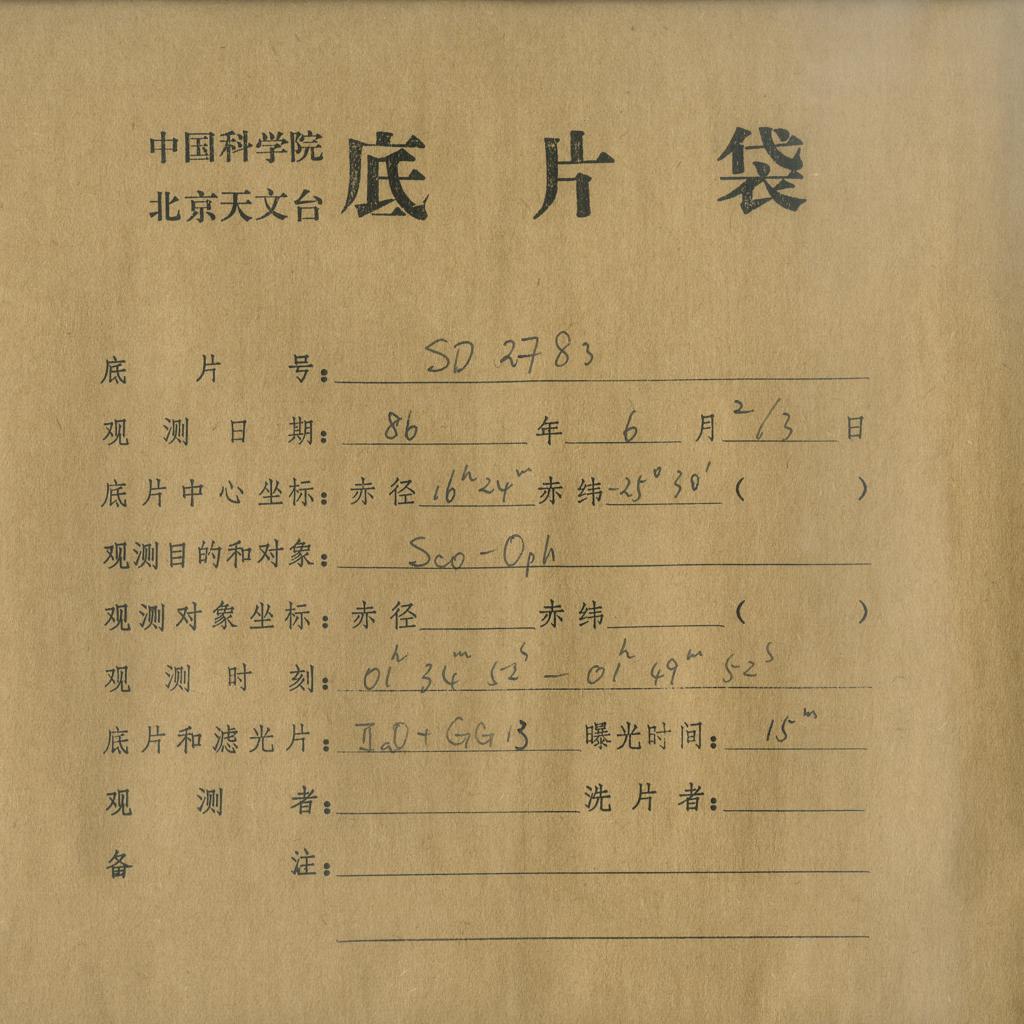 中国科学院
北京天文台
底片袋
底片号：SD 2783
观测日期：86年6月2/3日
底片中心坐标：赤径16ʰ24ᵐ赤纬-25°30′（ ）
观测目的和对象：Sco-Oph
观测对象坐标：赤径 赤纬 （ ）
观测时刻：01ʰ34ᵐ52ˢ — 01ʰ49ᵐ52ˢ
底片和滤光片：IIaO+GG13 曝光时间：15ᵐ
观测者： 洗片者：
备注：